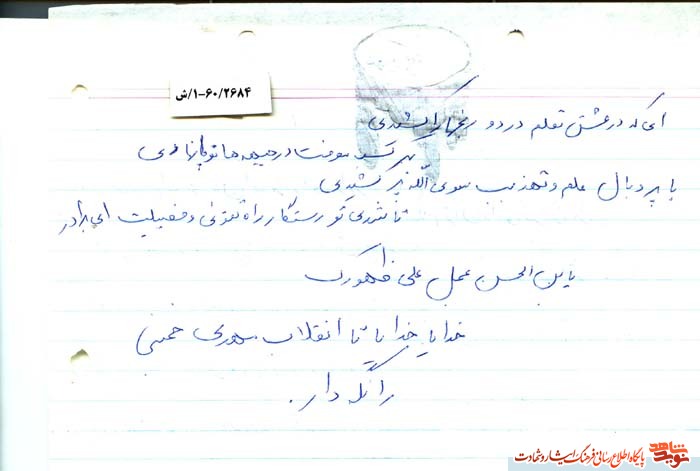 ۱-۶۰/۲۶۸۴/ش
ای که در عشق تعلم درد و رنجها را کشیدی
سوخت در جبهه ها تو پا نهادی
با پر و بال علم و تهذیب سوی الله پر کشیدی
تا شدی تو رستگار راه تقوی و فضیلت ای برادر
یابن الحسن عجل علی ظهورک
خدایا خدایا تا انقلاب مهدی خمینی
را نگه دار.
نوید شاهد
پایگاه اطلاع رسانی فرهنگ ایثار و شهادت